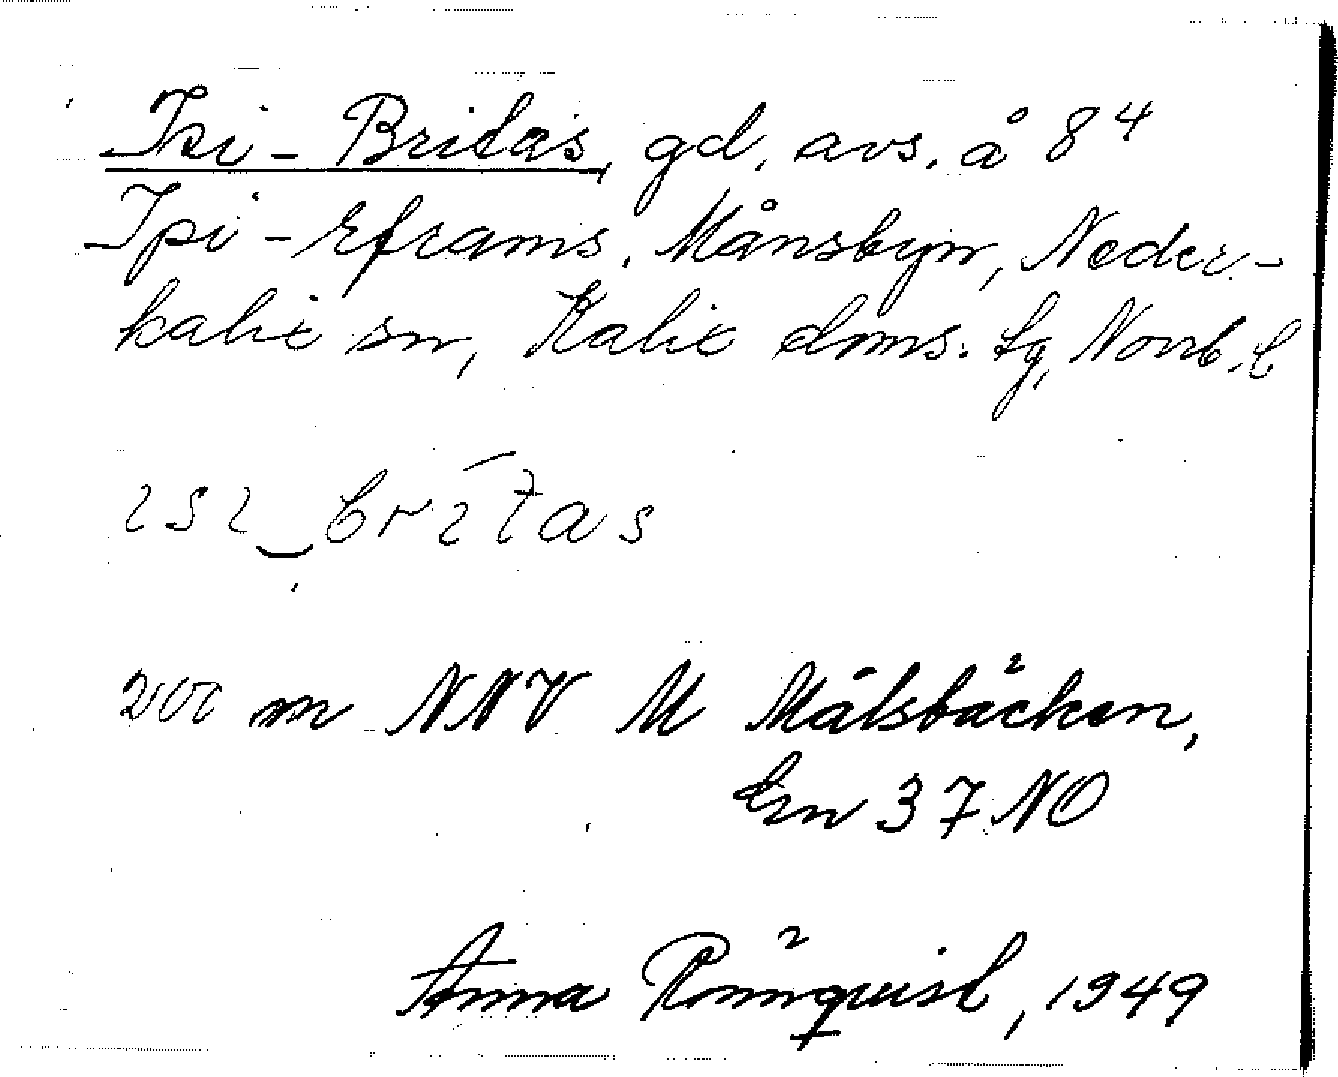 Isi-Britas, gd, avs. å 8⁴
Ipi-Eframs, Månsbyn, Neder-
kalix sn, Kalix doms. tg, Norrb. l
ısı‿brıtas
200 m NNV M Målsbäcken,
En 37 NO
Anna Rönnquist, 1949